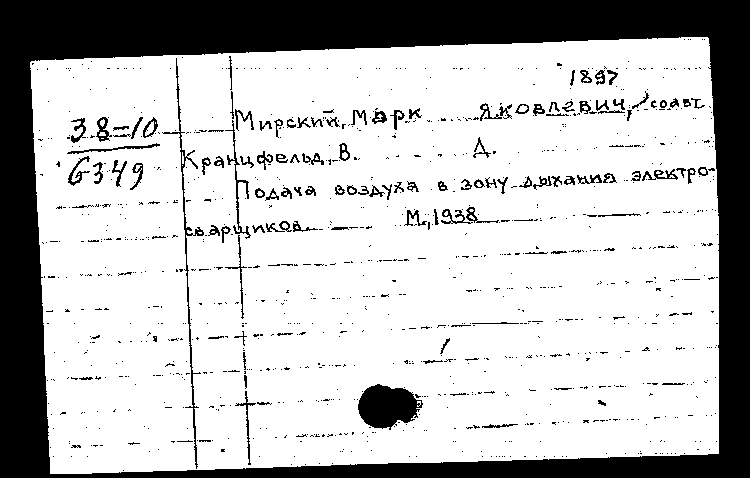 1897
38=10 Мирский, Марк Яковлевич, соавт.
6349 Кранцфельд, В. Д.
Подача воздуха в зону дыхания электро-
сварщиков. М., 1938